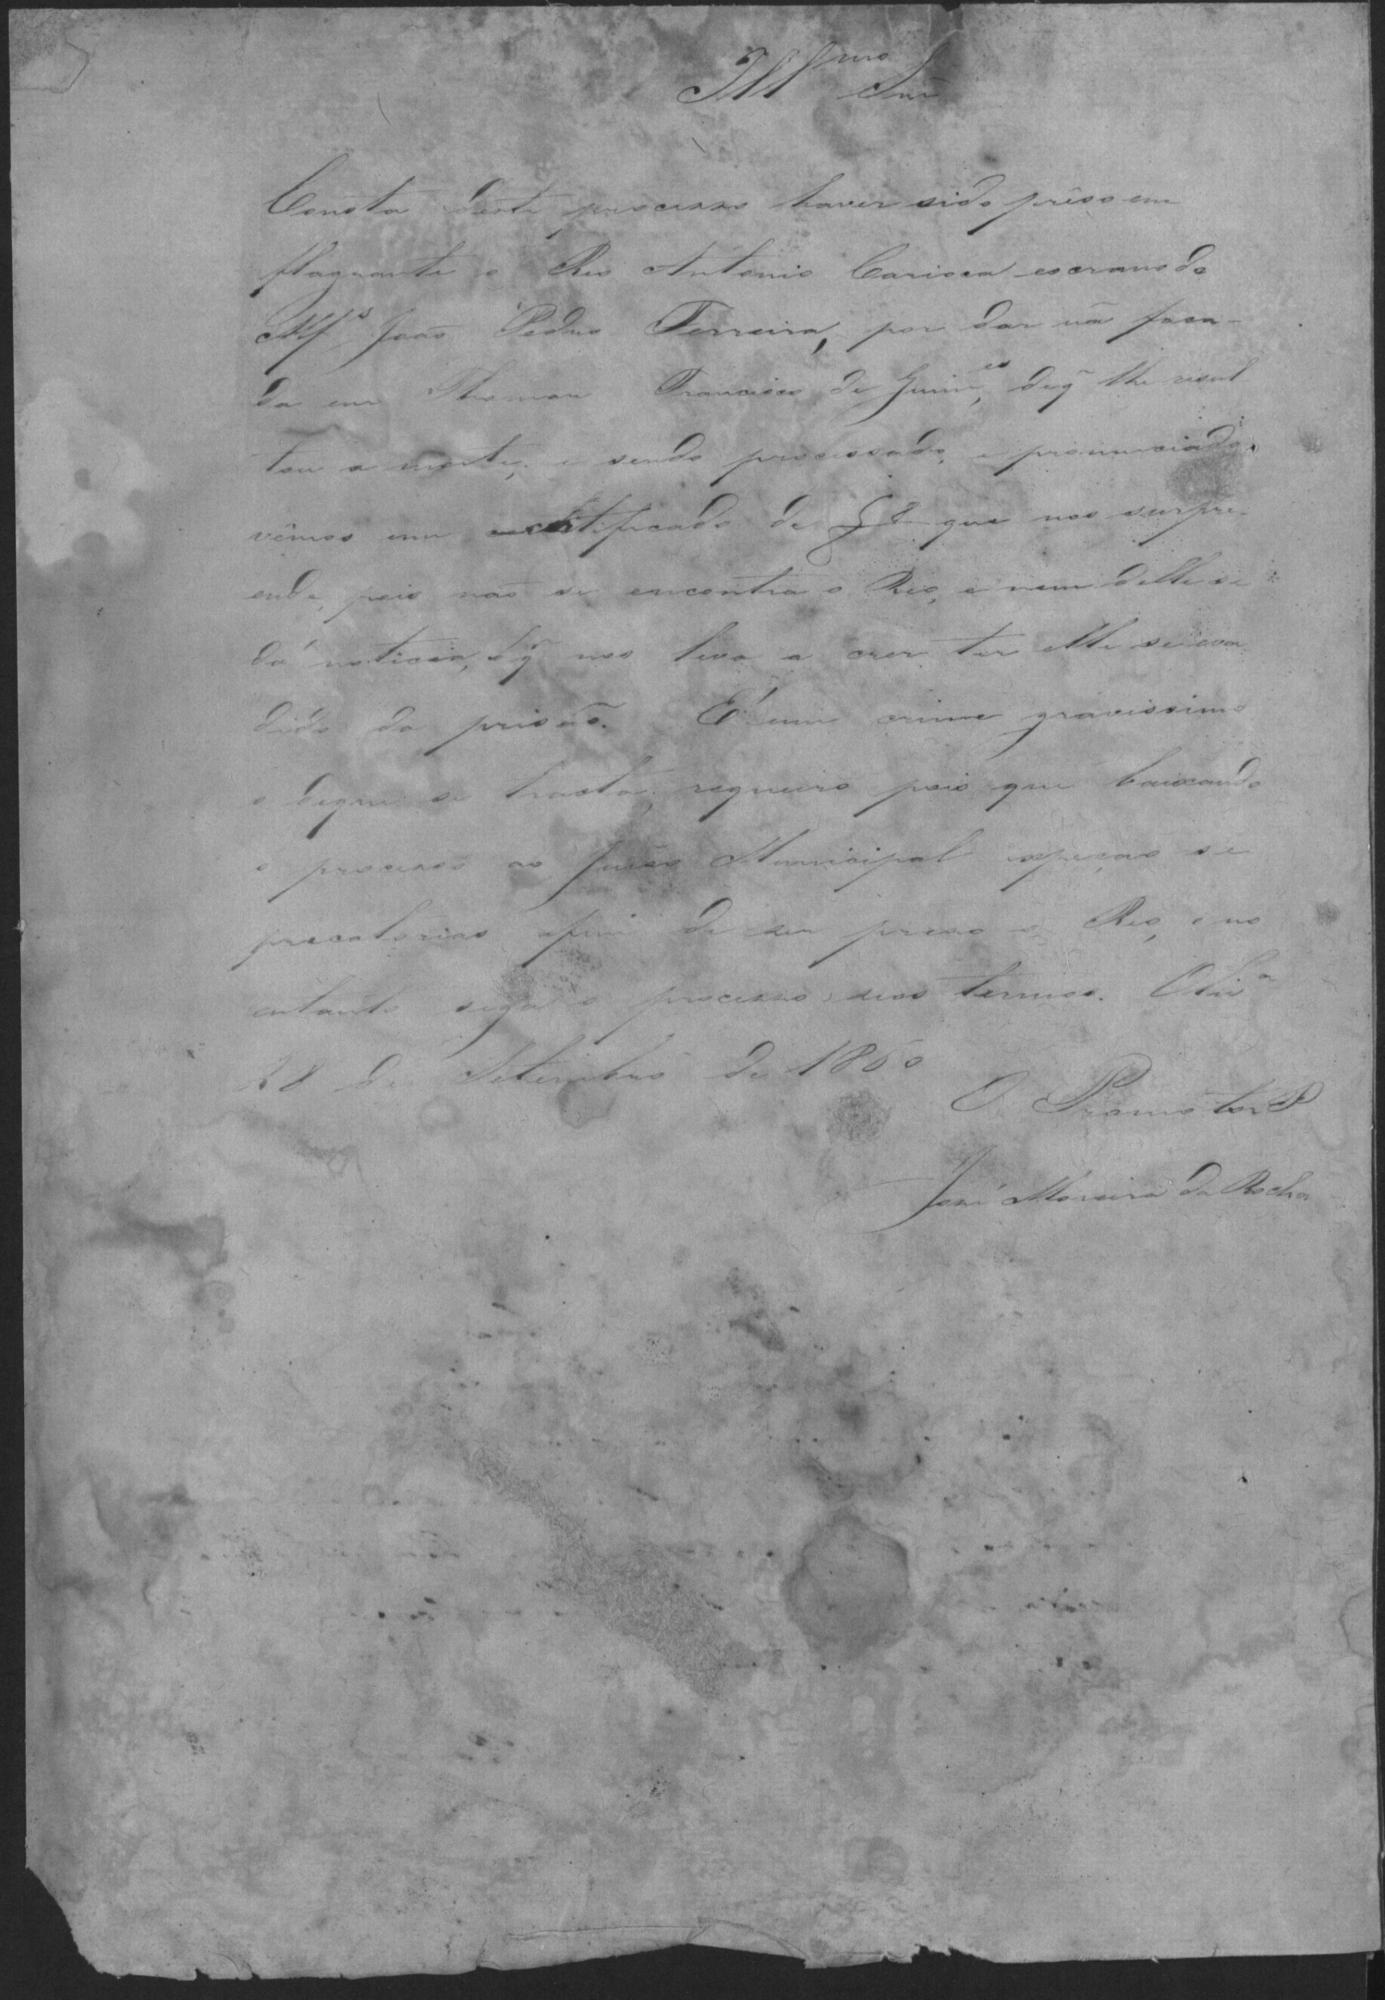 Illmo Snr
Consta deste processo haver sido prêso em
flagrante o Reo Antonio Carioca escravo do
Alfs João Pedro Ferreira, por dar uã faca-
da em Thomau Francisco de Guimes, deq̃ lhe resul
tou a morte, e sendo processado, e pronunciado.
vêmos um certificado de que nos surpre-
ende, pois não se encontra o Reo, e nem delle se
dá noticia, oq̃ nos leva a crer ter elle se eva
dido da prisão. É um crime gravissimo
o deque se tracta, requeiro pois que baixando
o processo ao Juiso Municipal expeção se
precatorias afim de ser preso o Reo, e no
entanto siga o processo seos termos. Olivª
28 de Setembro de 1860
O Promotor P
José Moreira da Rocha